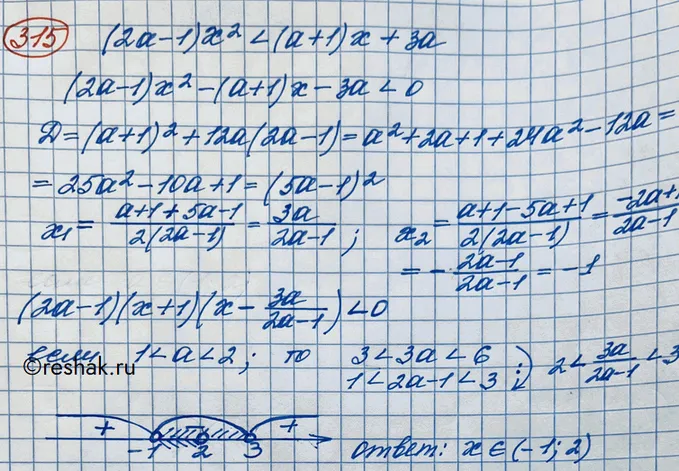 315 (2a-1)x² < (a+1)x + 3a
(2a-1)x² - (a+1)x - 3a < 0
D = (a+1)² + 12a(2a-1) = a² + 2a + 1 + 24a² - 12a =
= 25a² - 10a + 1 = (5a-1)²
x₁ = (a+1+5a-1)/(2(2a-1)) = 3a/(2a-1); x₂ = (a+1-5a+1)/(2(2a-1)) = (-2a+1)/(2a-1)
= -(2a-1)/(2a-1) = -1
(2a-1)(x+1)(x - 3a/(2a-1)) < 0
если 1<a<2; то 3<3a<6
1<2a-1<3 :) 2 < 3a/(2a-1) < 3
©reshak.ru
+ -1 2 3 +
ответ: x ∈ (-1; 2)